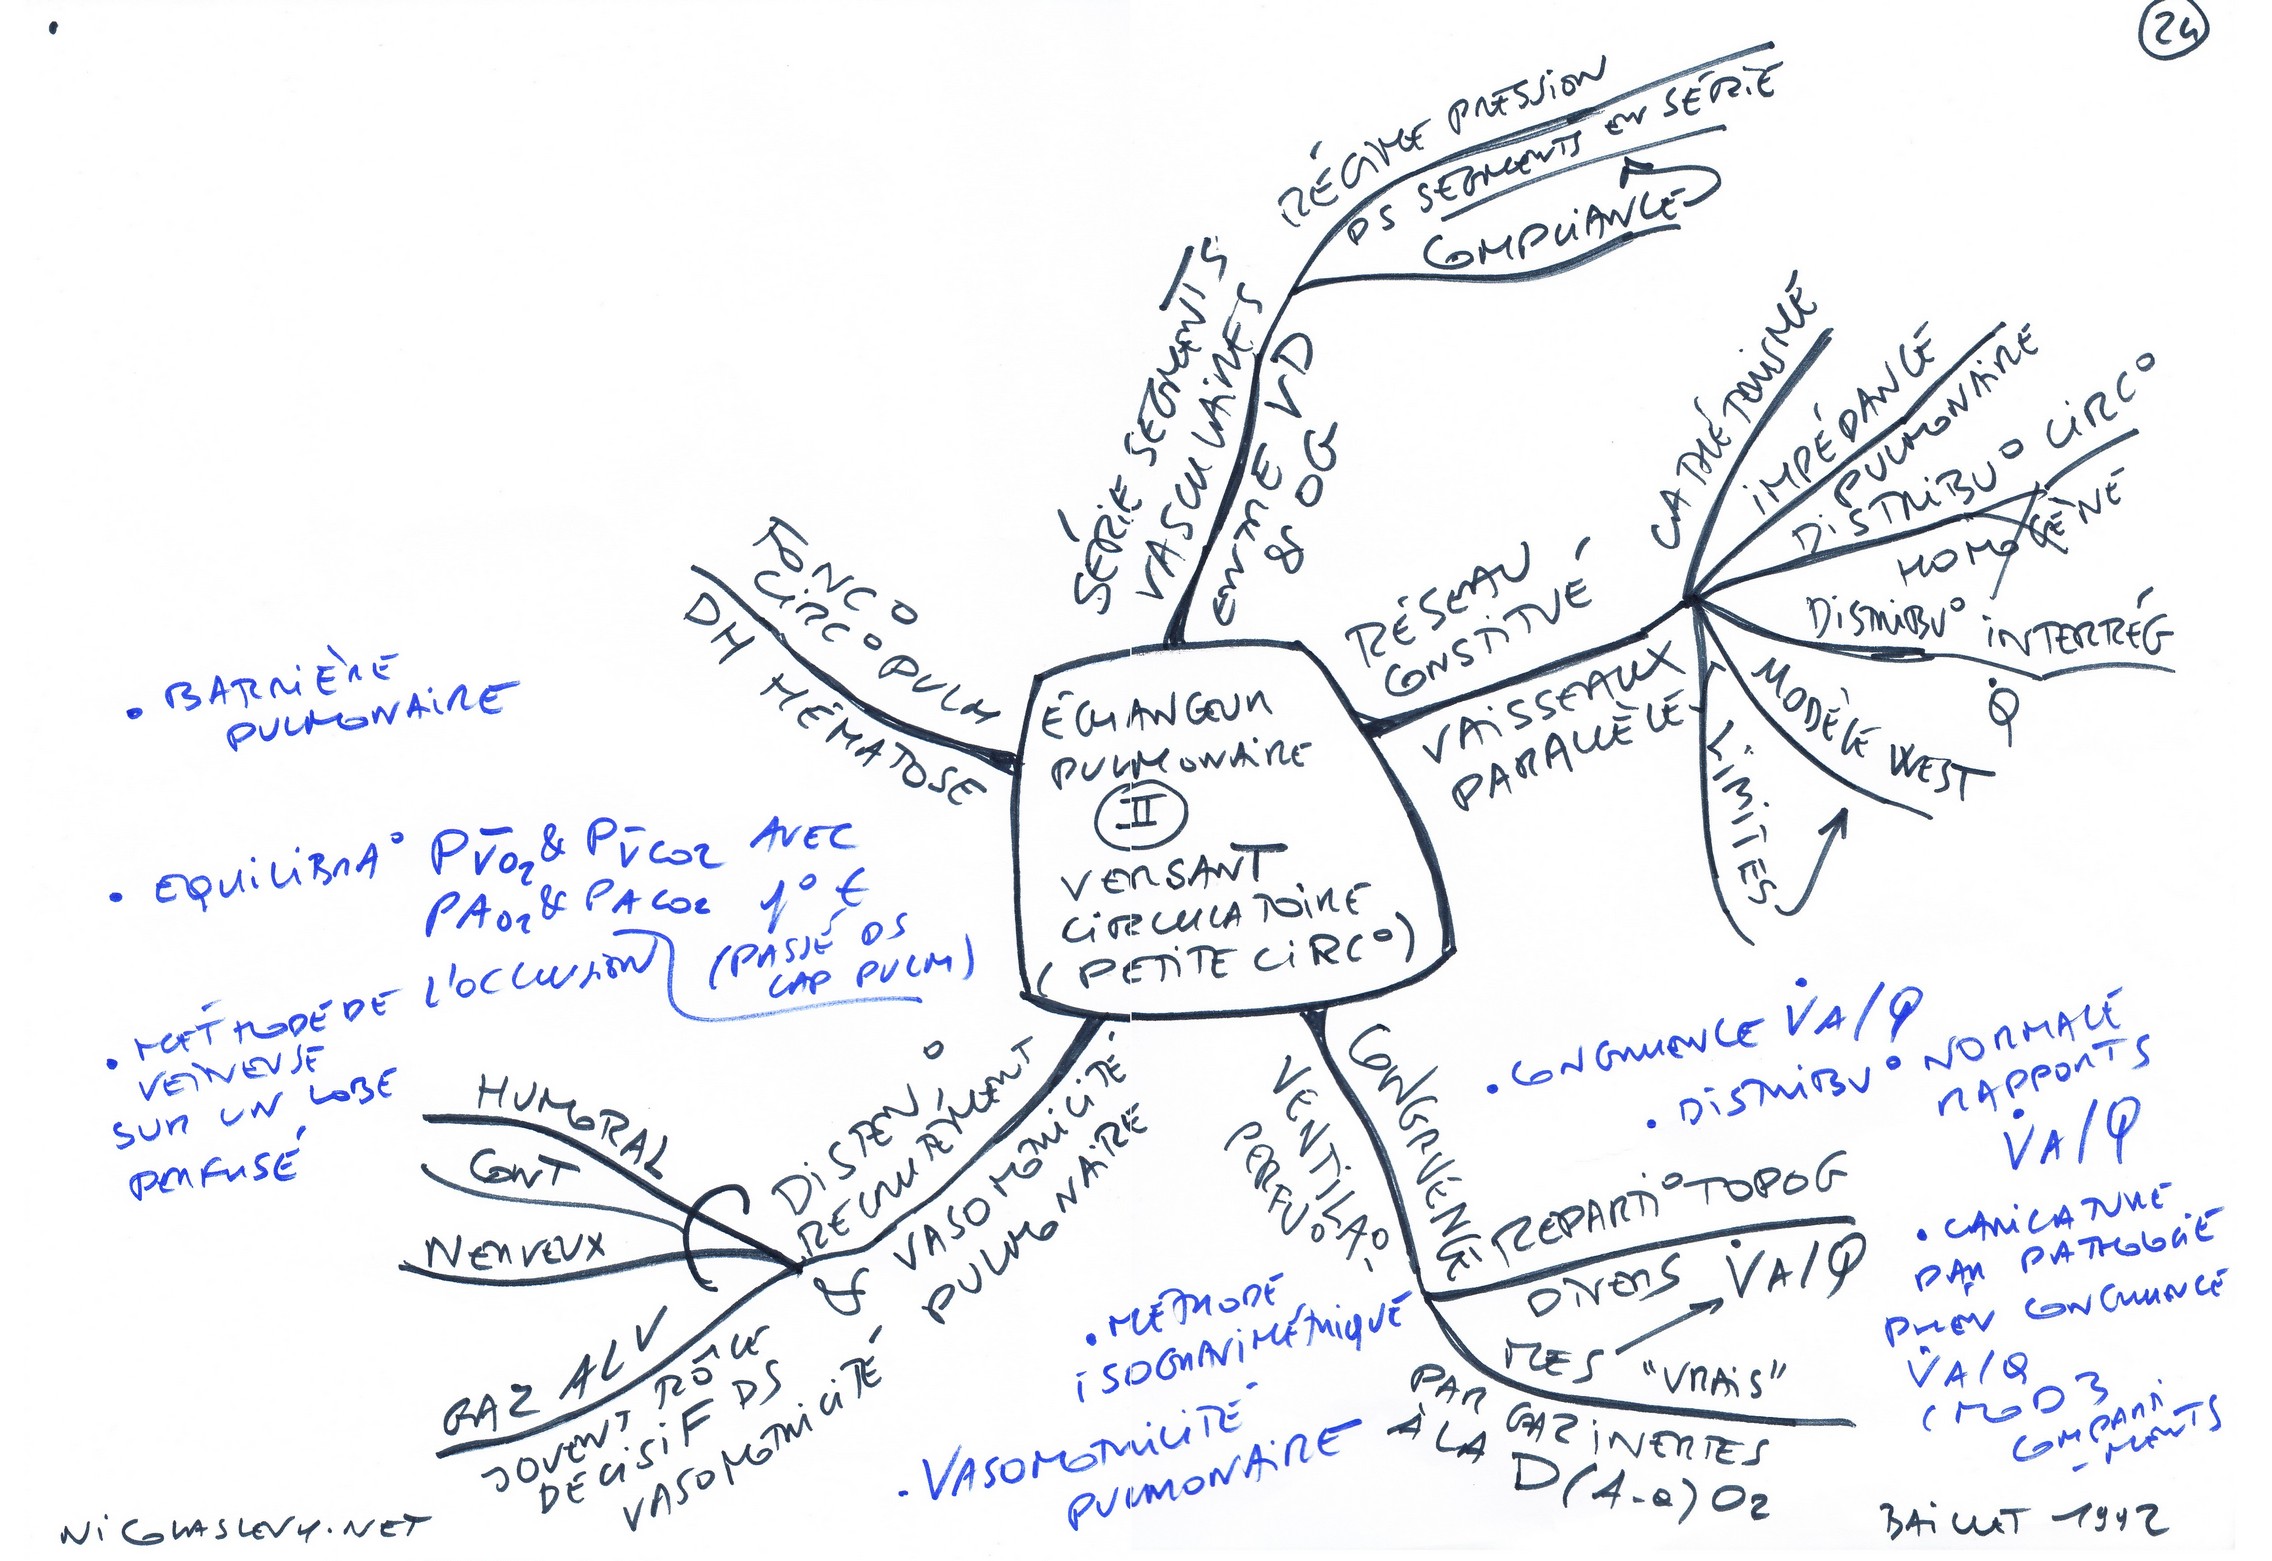 24
RÉGIME PRESSION
DS SEGMENTS EN SÉRIE
COMPLIANCE
SÉRIE SEGMENTS
VASCULAIRES
ENTRE VD
& OG
CATHÉTÉRISME
IMPÉDANCE
PULMONAIRE
DISTRIBU° CIRC°
HOMOGÈNE
DISTRIBU° INTERRÉG
Q̇
MODÈLE WEST
LIMITES
RÉSEAU
CONSTITUÉ
VAISSEAUX
PARALLÈLE
FONC°
CIRC° PULM
DS HÉMATOSE
ÉCHANGEUR
PULMONAIRE
II
VERSANT
CIRCULATOIRE
(PETITE CIRC°)
• BARRIÈRE
PULMONAIRE
• EQUILIBRA° Pv̄O2 & Pv̄CO2 AVEC
PAO2 & PACO2 1° €
(PASSÉ DS
CAP PULM)
• MÉTHODE DE L'OCCLUSION
VEINEUSE
SUR UN LOBE
PERFUSÉ
DISTEN°
RECRUTEMENT
& VASOMOTRICITÉ
PULMONAIRE
HUMORAL
CONT
NERVEUX
GAZ ALV
JOUENT RÔLE
DÉCISIF DS
VASOMOTRICITÉ
CONGRUENCE
VENTILA°
PERFU°
REPARTI° TOPOG
DIVERS V̇A/Q̇
MES "VRAIS"
PAR GAZ INERTES
À LA D(A-a)O2
• CONGRUENCE V̇A/Q̇
• DISTRIBU° NORMALE
RAPPORTS
V̇A/Q̇
• CARICATURE
PAR PATHOLOGIE
PHEN CONGRUENCE
V̇A/Q̇
(MOD 3
COMPARTI
-MENTS
• MÉTHODE
ISOGRAVIMÉTRIQUE
• VASOMOTRICITÉ
PULMONAIRE
NICOLASLEVY.NET
BAILLET 1992